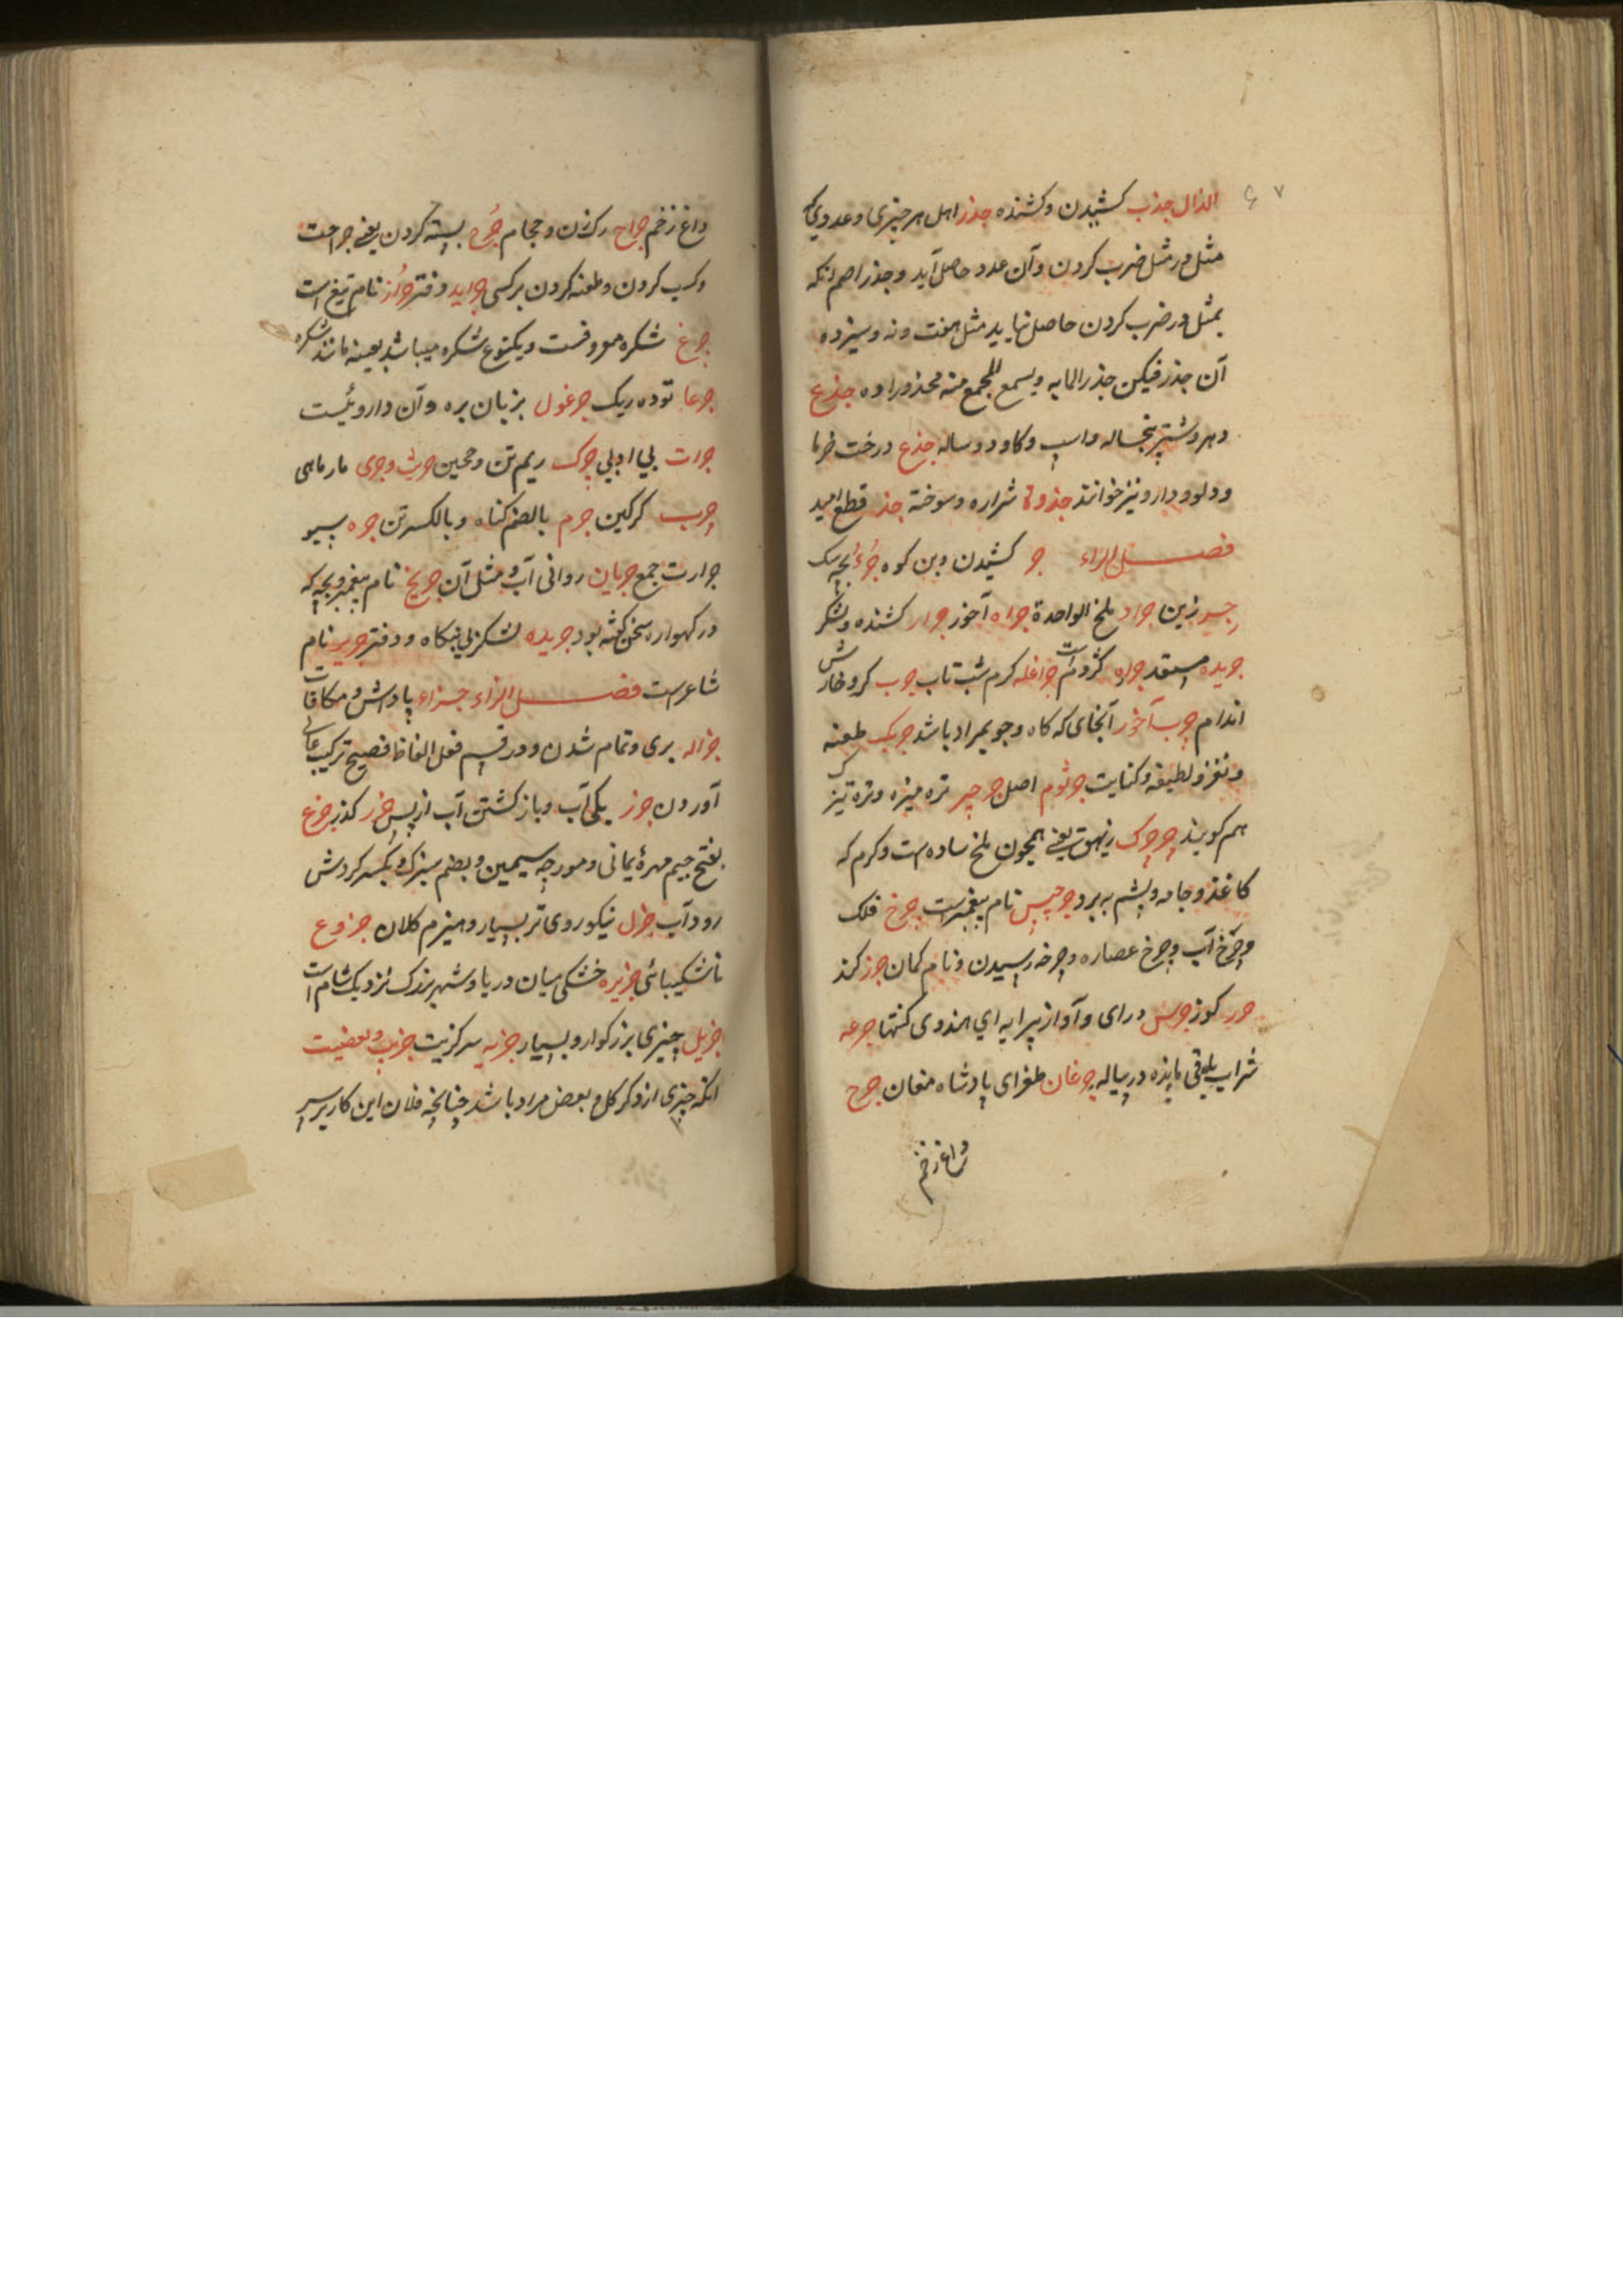 ۶۷
الذال جذب کشیدن و کشنده جذر اهل هر چیزی و عددی که
مثل در مثل ضرب کردن و آن عدد حاصل آید و جذر اصم انکه
بمثل در ضرب کردن حاصل نیاید مثل هفت و نه و سیزده
آن جذر فیکن جذر المایه و یسمع المجمع منه محذورا ده جذع
و هر دو شتر پنجساله و اسپ و کاو دو ساله جذع درخت خرما
و دلو و دارو نیز خوانند جذوة شراره و سوخته جذ قطع امید
فصل الراء جر کشیدن و بن کوه جرء بچه سک
زین جراد ملخ الواحدة جراده آخور جرار کشنده و لشکر
جریده جراره کژدم است جراغله کرم شب تاب جرب کر و خارش
اندام چرب آخور آنجای که کاه و جو بمراد باشد چربک طعنه
و نغز و لطیفه و کنایت جرثوم اصل جرجیر تره میزه و تره تیزک
هم کویند چرچرک یعنی همچون ملخ ساده است و کرم که
کاغذ و جامه و پشم به برد جرجیس نام پیغمبر است چرخ فلک
و چرخ آب و چرخ عصاره و چرخه رسیدن و نام کمان جرز کرند
کوز جرس درای و آواز پیرایه ای هندوی کنتها جرعه
شراب باقی مانده در پیاله جرغان طغرای پادشاه مغان جرح
داغ زخم
داغ زخم جراح رکزن و حجام جرح بسته کردن یعنی جراحت
و کسب کردن و طعنه کردن بر کسی جراید دفتر جراز نام تیغ است
چرغ شکره معروفست و یکنوع شکره میباشد بعینه مانند شکره
جرعا توده ریک جرغول بزبان بره و آن داروئیست
جرات بی ادبی چرک ریم تن و جریث و جری مار ماهی
چرب کرکین جرم بالضم کناه و بالکسر تن جره سبو
جرارت جمع جریان روانی آب و مثل آن جریح نام پیغمبر و بچه که
در کهواره سخن کفته بود جریده لشکر بی بنکاه و دفتر جریر نام
شاعر است فصل الزاء جزاء پاداش و مکافات
جزاله بری و تمام شدن و در قسم فعل الفاظ فصیح ترکیب عالی
آوردن جزر یکی آب و باز کشتن آب از پس جزر کذر جزع
بفتح جیم مهرهٔ یمانی و مورچه سیمین و بضم سبزک و بکسر کردش
رود آب جزل نیکو روی تر بسیار و هیزم کلان جزوع
ناشکیبائی جزیره خشکی میان دریا و شهر بزرک نزدیک شام است
جزیل چیزی بزرکوار و بسیار جزیه سر کزیت جزیت و بعضیت
انکه چیزی از ذکر کل و بعض مراد باشد چنانچه فلان این کار بر سر